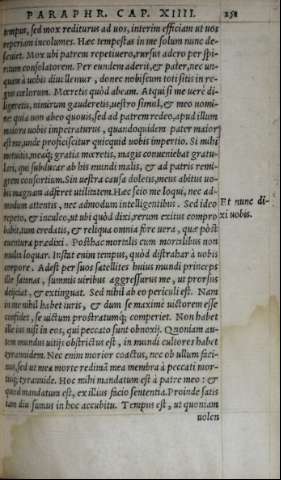 PARAPHR. CAP. XIIII. 258
tempus, sed mox rediturus ad uos, interim efficiam ut uos
reperiam incolumes. Hæc tempestas in me solum nunc de-
sæuiet. Mox ubi patrem repetiuero, rursus adero per spi-
ritum consolatorem. Per eundem aderit, & pater, nec un-
quam à uobis diuelletur, donec nobiscum toti sitis in re-
gno cœlorum. Mœretis quòd abeam. Atqui si me uerè di-
ligeretis, nimirum gauderetis, uestro simul, & meo nomi-
ne: quia non abeo quouis, sed ad patrem redeo, apud illum
maiora uobis impetraturus, quandoquidem pater maior
est me, unde proficiscitur quicquid uobis impertio. Si mihi
metuitis, meaq; gratia mœretis, magis conueniebat gratu-
lari, qui subducar ab his mundi malis, & ad patris remi-
grem consortium. Sin uestra causa doletis, meus abitus uo-
bis magnam adferet utilitatem. Hæc scio me loqui, nec ad-
modum attentis, nec admodum intelligentibus. Sed ideo
repeto, & inculco, ut ubi quòd dixi, rerum exitus compro
babit, tum credatis, & reliqua omnia fore uera, quæ pòst
euentura prædixi. Posthac mortalis cum mortalibus non
multa loquar. Instat enim tempus, quòd distrahar à uobis
corpore. Adest per suos satellites huius mundi princeps
ille satanas, summis uiribus aggressurus me, ut prorsus
obijciat, & extinguat. Sed nihil ab eo periculi est. Nam
in me nihil habet iuris, & dum se maximè uictorem esse
confidet, se uictum prostratumq; comperiet. Non habet
ille ius nisi in eos, qui peccato sunt obnoxij. Quoniam au-
tem mundus uitijs obstrictus est, in mundi cultores habet
tyrannidem. Nec enim morior coactus, nec ob ullum faci-
nus, sed ut mea morte redimã mea membra à peccati mor-
tisq; tyrannide. Hoc mihi mandatum est à patre meo: &
quod mandatum est, ex illius facio sententia. Proinde satis
iam diu sumus in hoc accubitu. Tempus est, ut quoniam
uolen
Et nunc di-
xi uobis.